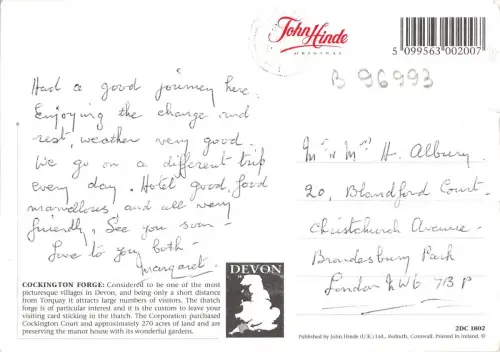 John Hinde
ORIGINAL
5 099563 002007
B 96993
Had a good journey here.
Enjoying the change and
rest, weather very good.
We go on a different trip
every day. Hotel good, food
marvellous, and all very
friendly, See you soon -
Love to you both -
Margaret.
Mr & Mrs H. Albury.
20, Blandford Court.
Christchurch Avenue.
Brondesbury Park
London NW6 7BP
COCKINGTON FORGE: Considered to be one of the most
picturesque villages in Devon, and being only a short distance
from Torquay it attracts large numbers of visitors. The thatch
forge is of particular interest and it is the custom to leave your
visiting card sticking in the thatch. The Corporation purchased
Cockington Court and approximately 270 acres of land and are
preserving the manor house with its wonderful gardens.
DEVON
2DC 1802
Published by John Hinde (U.K.) Ltd., Redruth, Cornwall. Printed in Ireland. ©